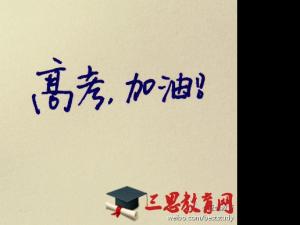 高考,加油!!
三思教育网
weibo.com/beststudy